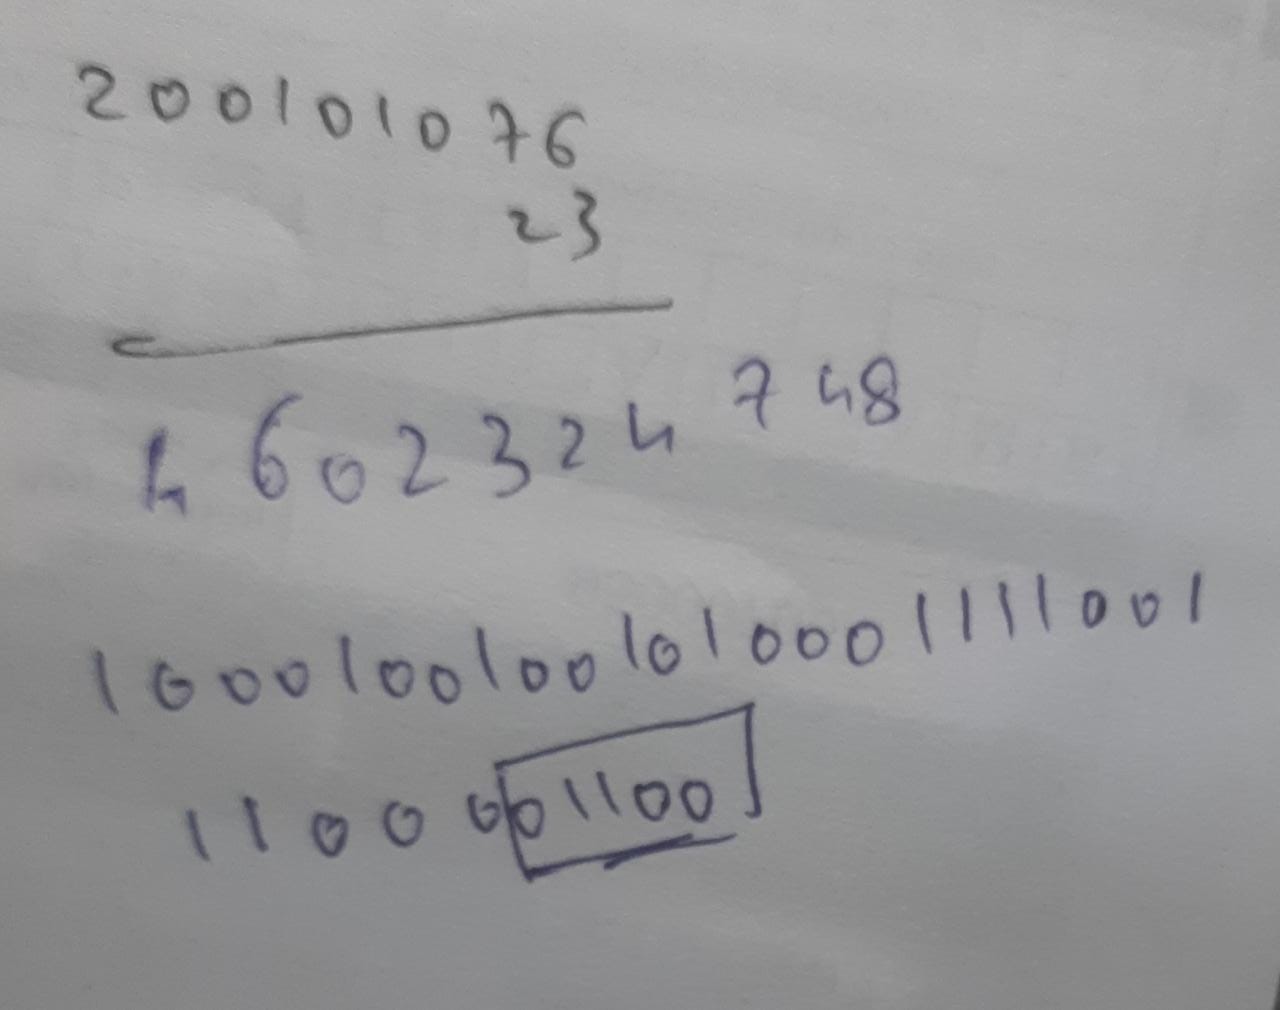 200101076
23
4602324748
10001001001010001111001
1100001100